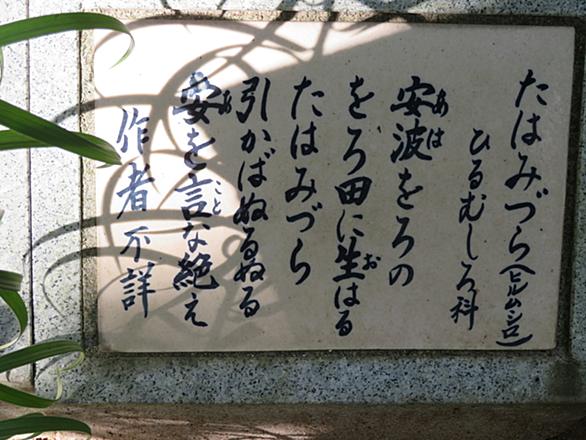 たはみづら(ヒルムシロ)
ひるむしろ科
安波をろの
をろ田に生はる
たはみづら
引かばぬるぬる
安を言な絶え
作者不詳